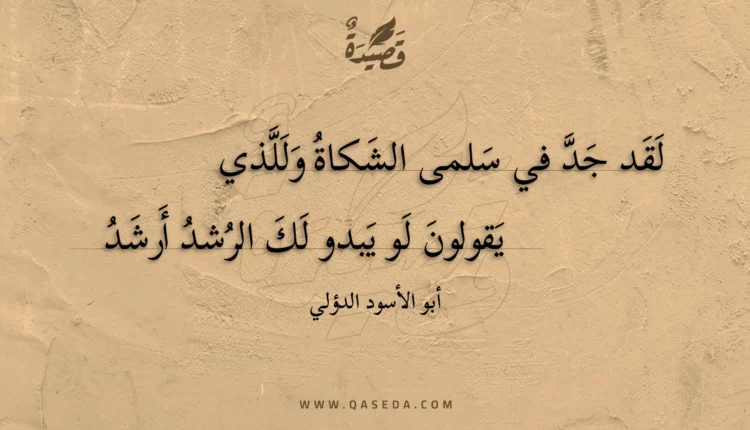 قَصِيْدَةٌ
لَقَد جَدَّ في سَلمى الشَكاةُ وَلَلَّذي
يَقولونَ لَو يَبدو لَكَ الرُشدُ أَرشَدُ
أبو الأسود الدؤلي
WWW.QASEDA.COM